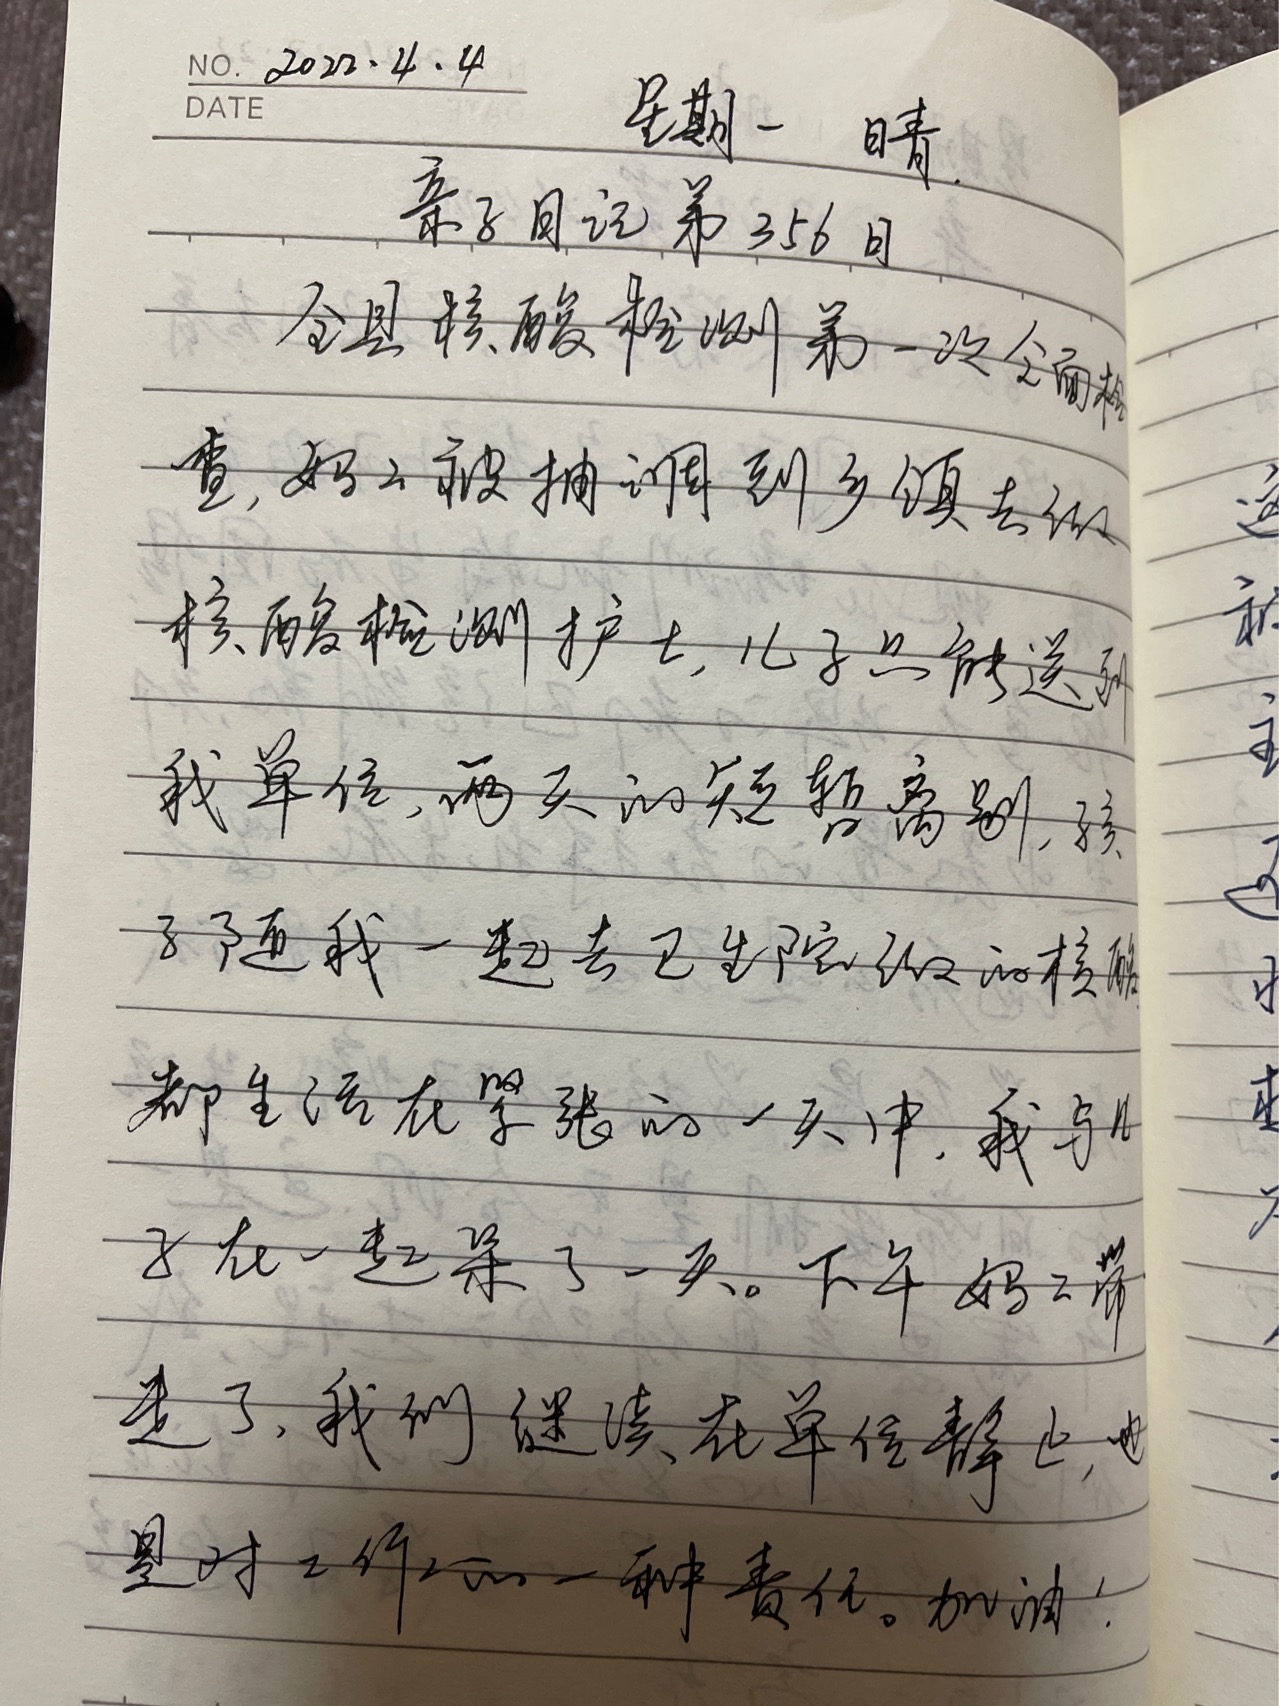 NO. 2022.4.4
DATE
星期一 晴.
亲子日记第356日
全县核酸检测第一次全面检
查,妈々被抽调到乡镇去做
核酸检测护士,儿子只能送到
我单位,两天的短暂离别,孩
子随我一起去卫生院做的核酸
都生活在紧张的一天中,我与儿
子在一起呆了一天。下午妈々带
走了,我们继续在单位静止,也
是对工作的一种责任。加油!